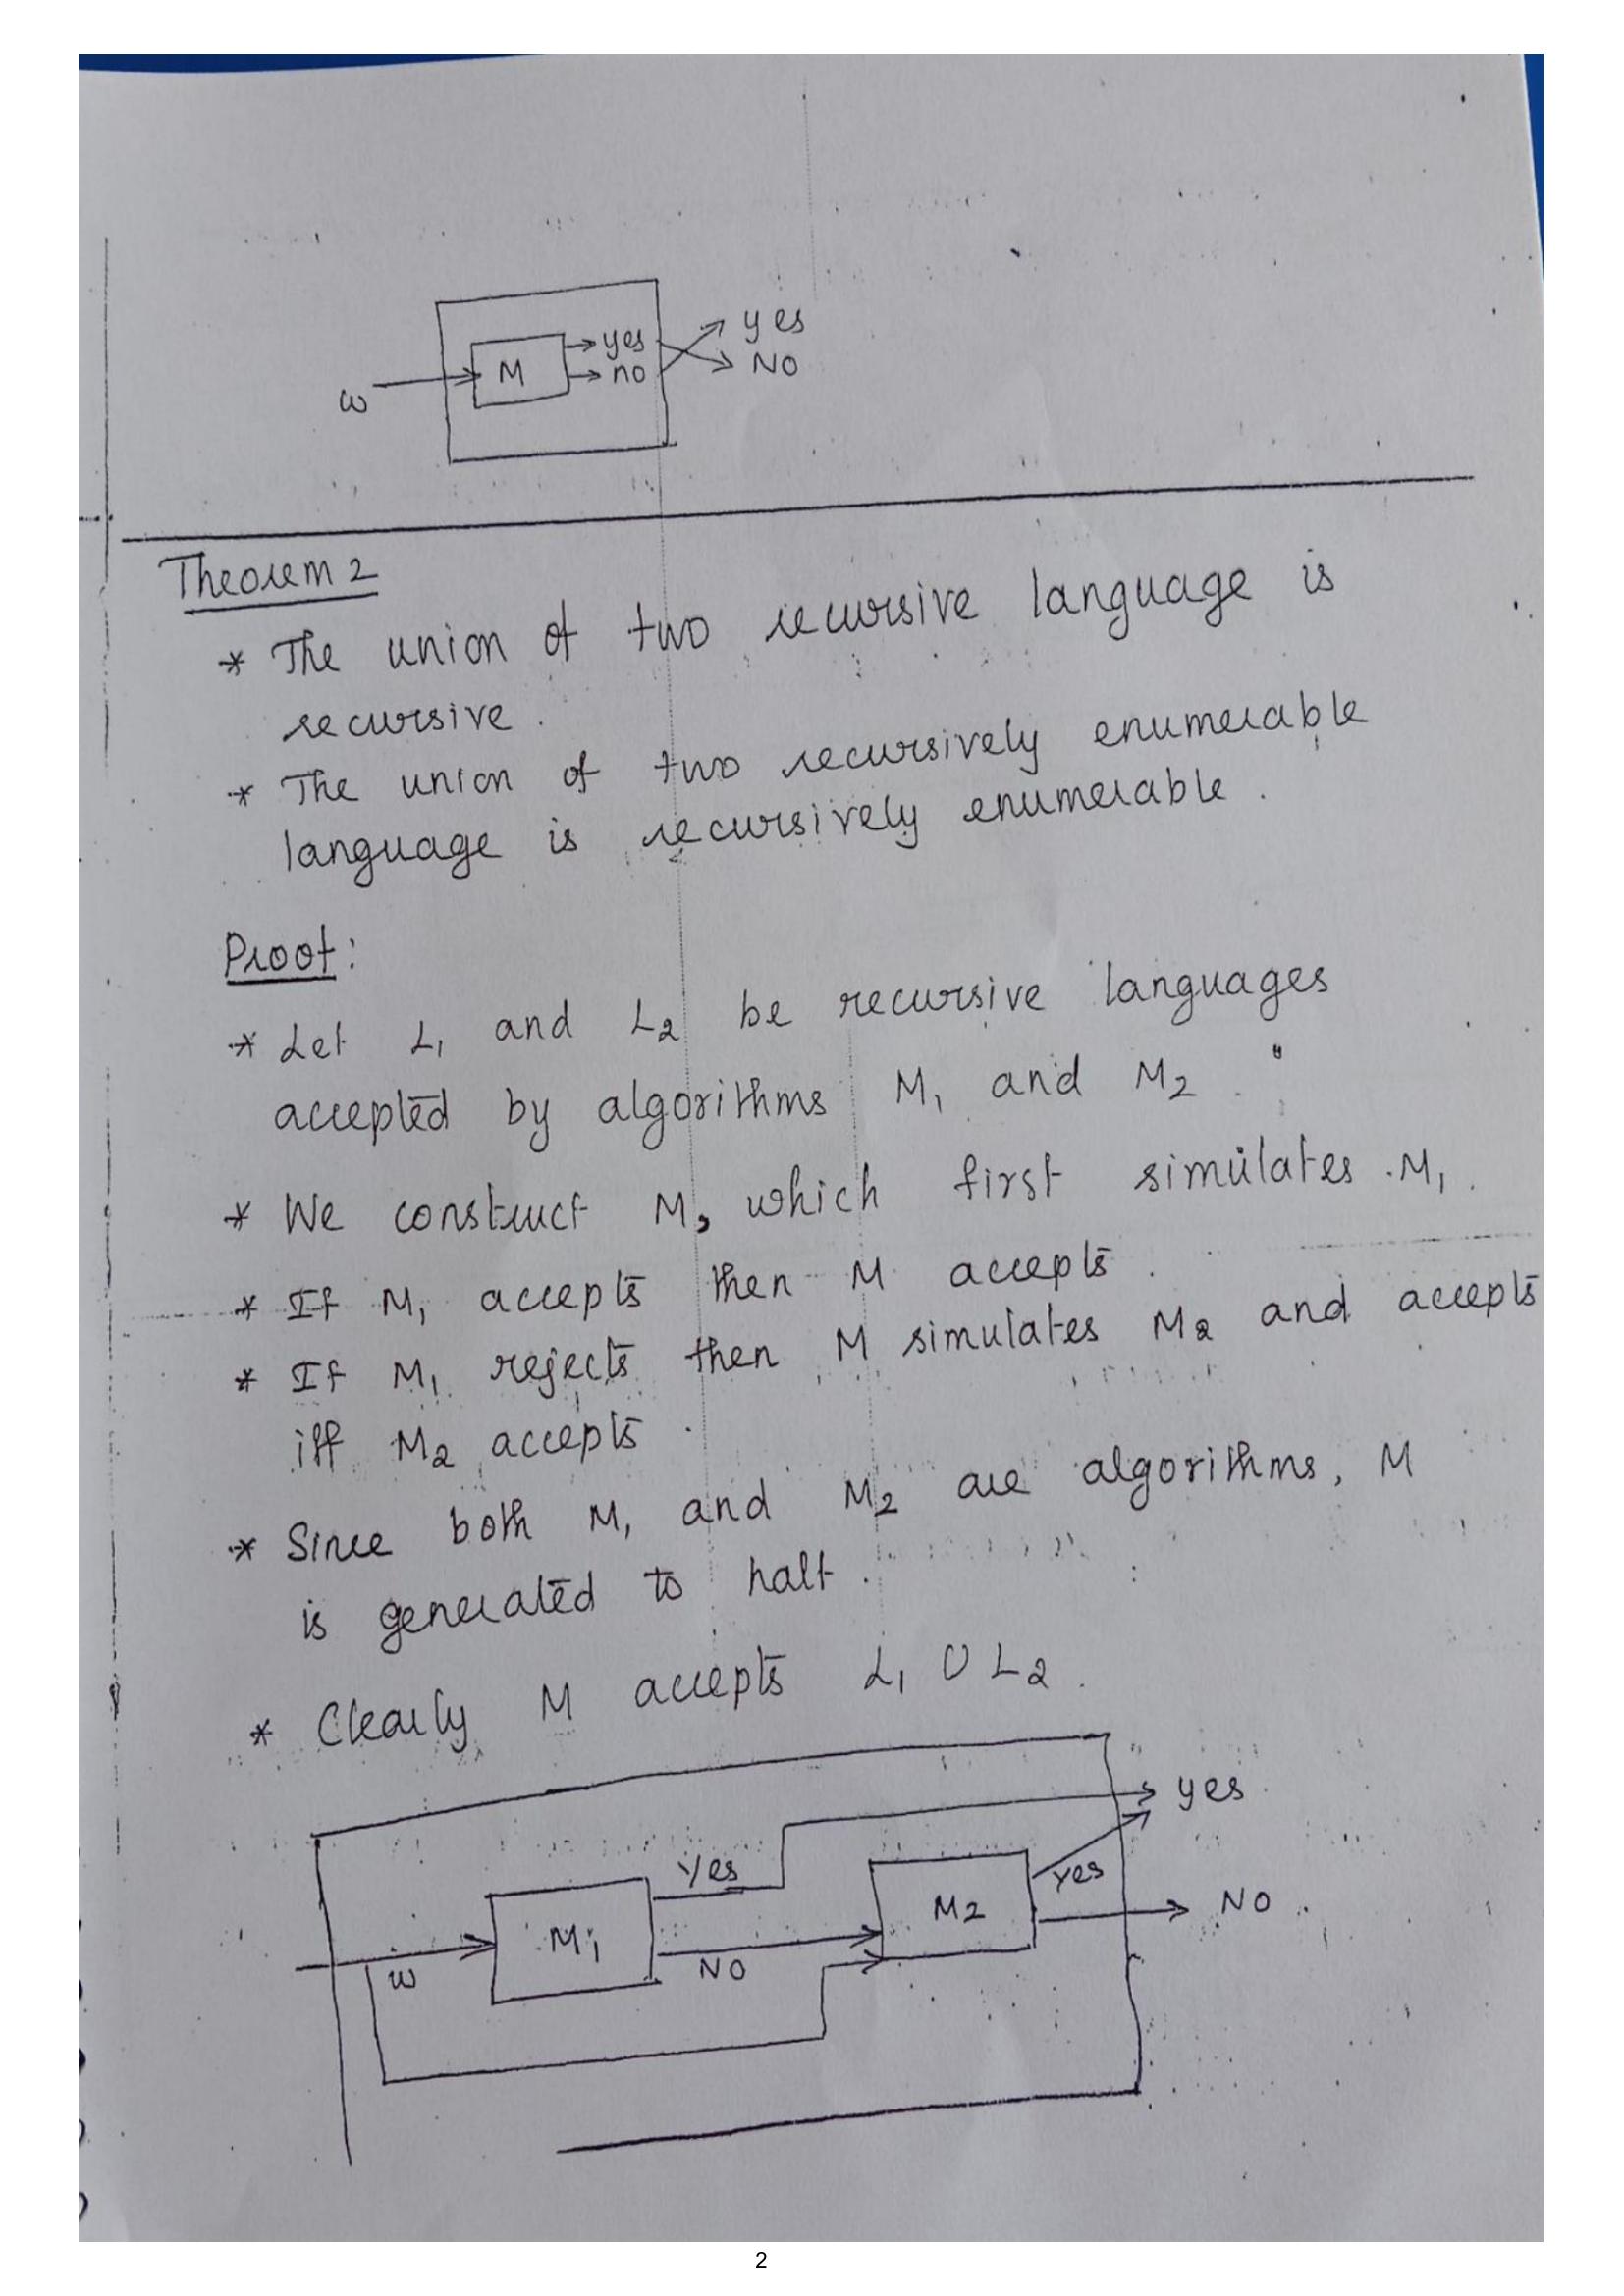 yes
yes
M
no
NO
w
Theorem 2
* The union of two recursive language is
recursive.
* The union of two recursively enumerable
language is recursively enumerable.
Proof:
* Let L₁ and L₂ be recursive languages
accepted by algorithms M₁ and M₂.
* We construct M, which first simulates M₁.
* If M₁ accepts then M accepts.
* If M₁ rejects then M simulates M₂ and accepts
iff M₂ accepts.
* Since both M₁ and M₂ are algorithms, M
is generated to halt.
* Clearly M accepts L₁ ∪ L₂.
yes
Yes
yes
M₂
NO
M₁
NO
w
2